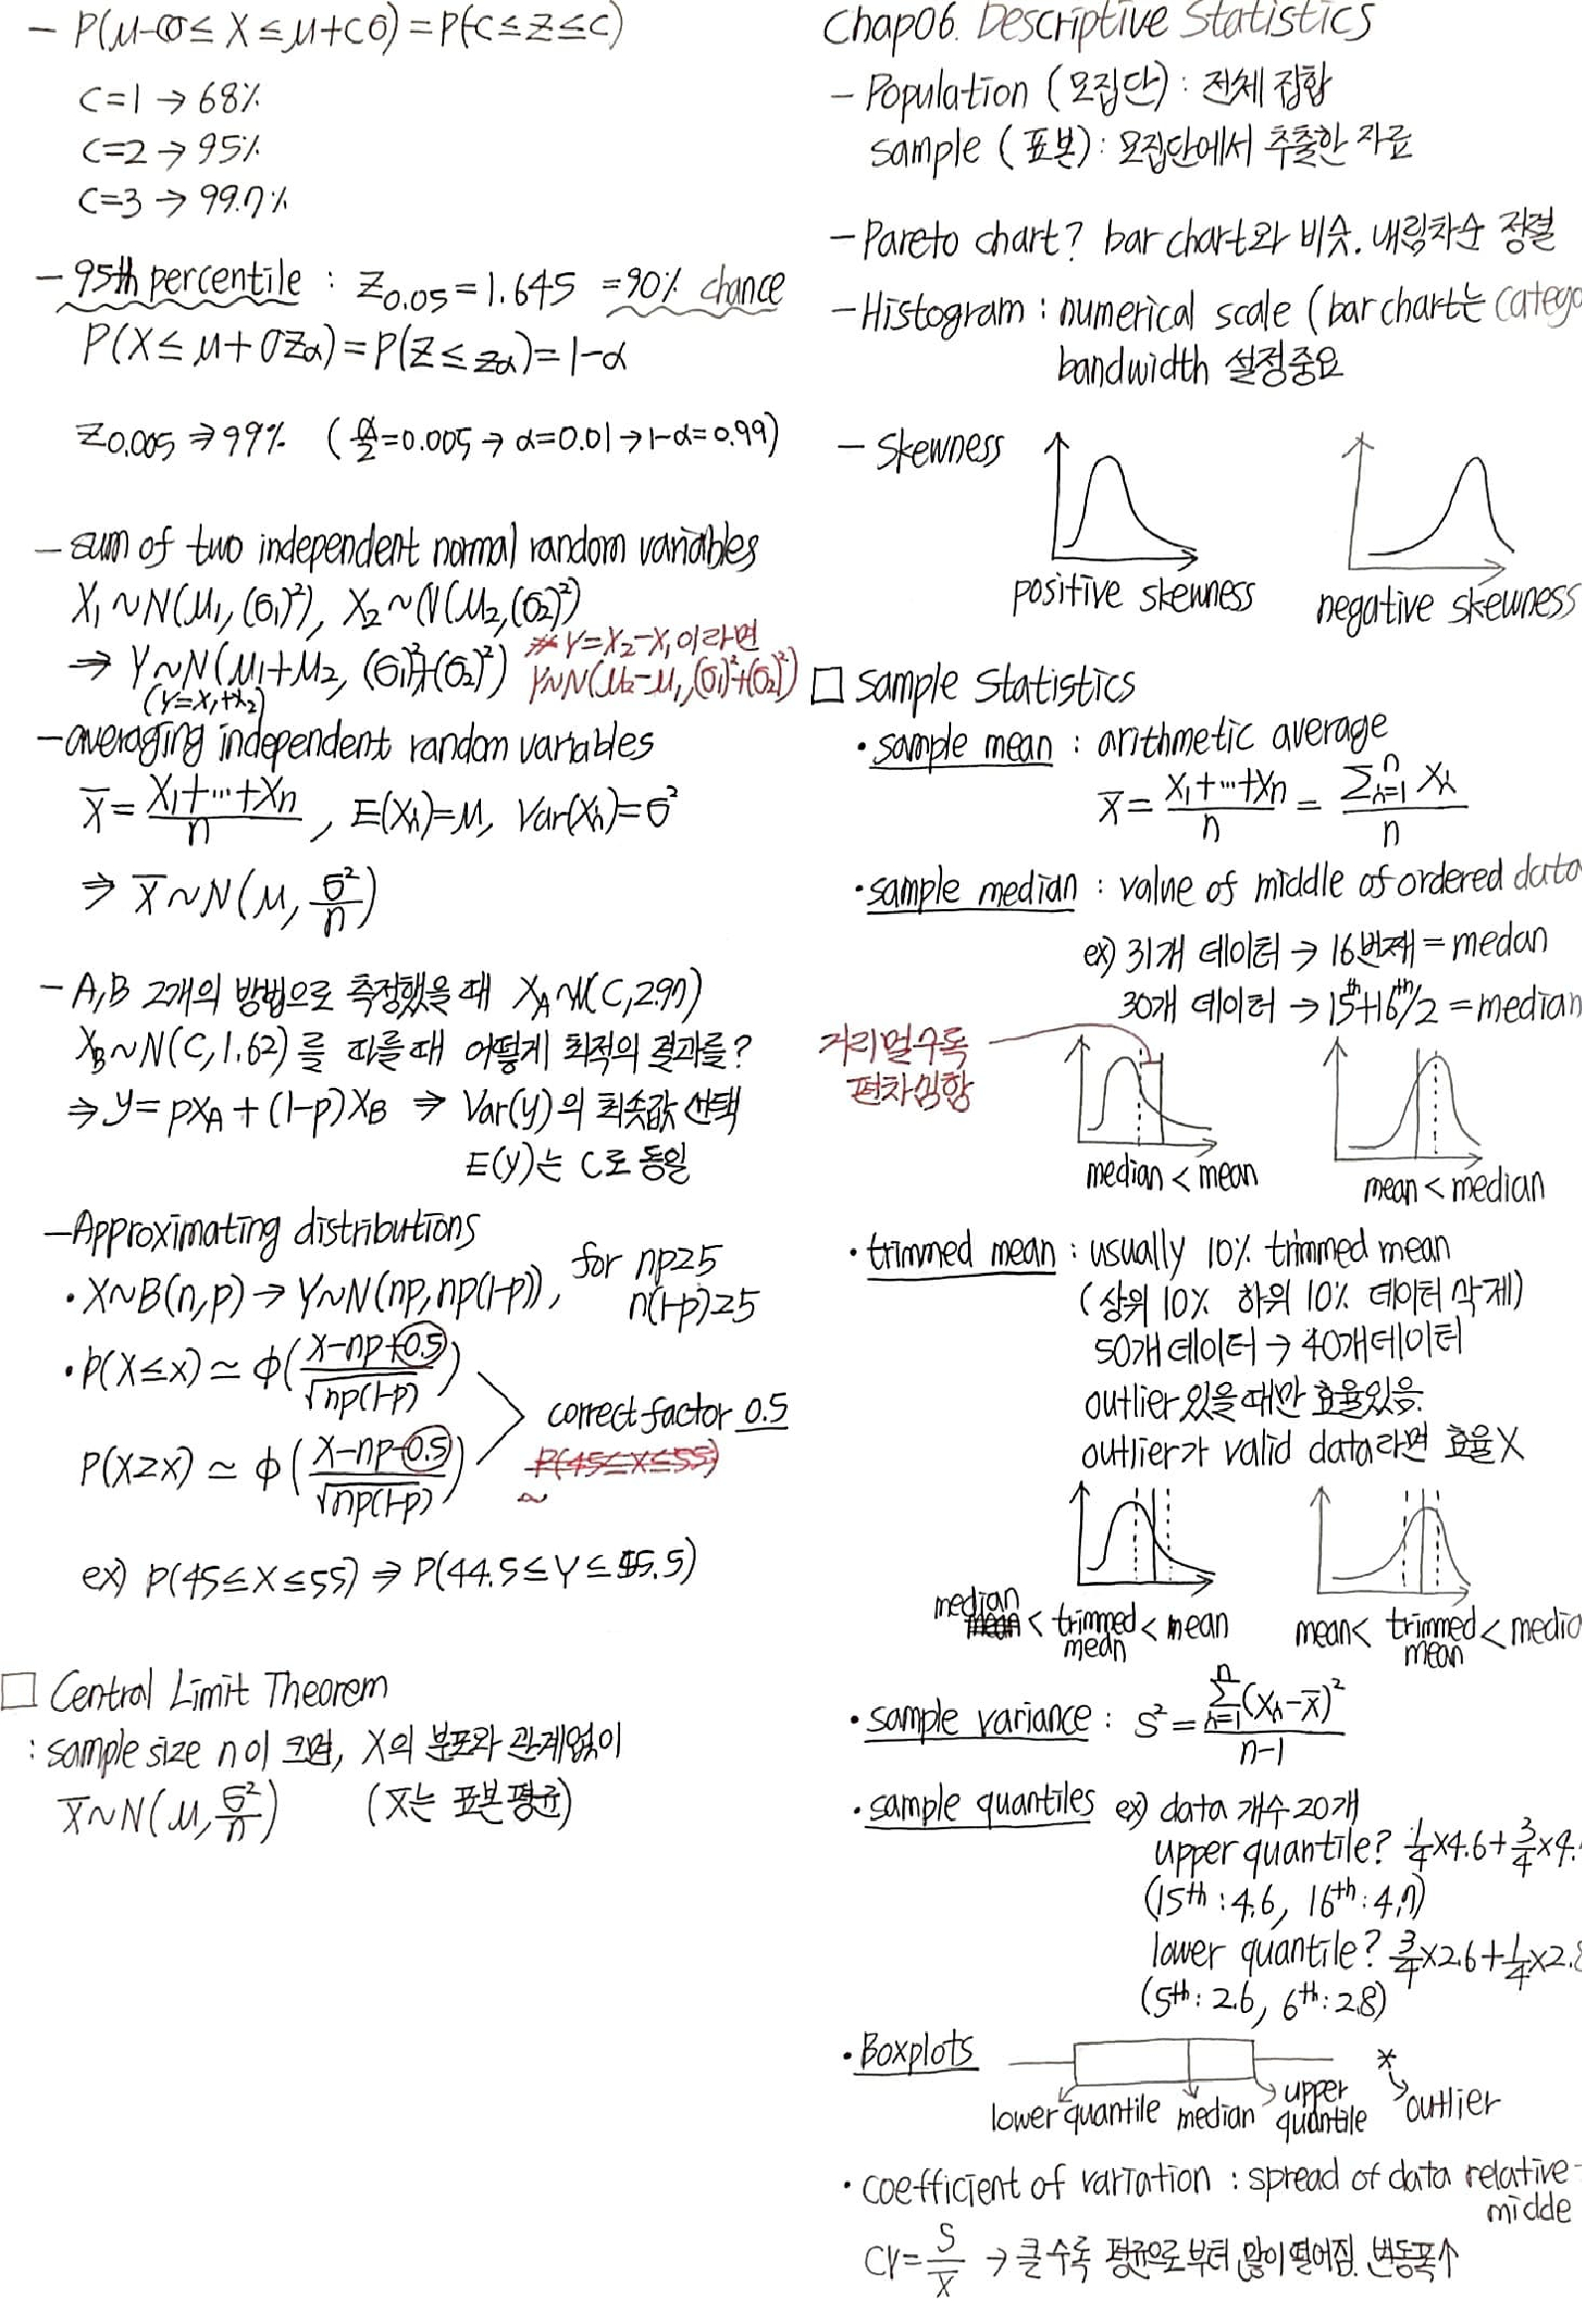 - P(μ-cσ ≤ X ≤ μ+cσ) = P(-c ≤ Z ≤ c)
c=1 → 68%
c=2 → 95%
c=3 → 99.7%
- 95th percentile : Z0.05 = 1.645 = 90% chance
P(X ≤ μ+σZα) = P(Z ≤ Zα) = 1-α
Z0.005 ⇒ 99% (α/2=0.005 → α=0.01 → 1-α=0.99)
- sum of two independent normal random variables
X1 ~ N(μ1, (σ1)²), X2 ~ N(μ2, (σ2)²)
⇒ Y ~ N(μ1+μ2, (σ1)²+(σ2)²)
(Y=X1+X2)
* Y=X2-X1 이라면
Y~N(μ2-μ1, (σ1)²+(σ2)²)
- averaging independent random variables
X̄ = X1+···+Xn / n , E(Xi)=μ, Var(Xi)=σ²
⇒ X̄ ~ N(μ, σ²/n)
- A,B 2개의 방법으로 측정했을 때 XA ~ N(C, 2.97)
XB ~ N(C, 1.62) 를 따를 때 어떻게 최적의 결과를?
⇒ y = pXA + (1-p)XB ⇒ Var(y)의 최솟값 선택
E(y)는 C로 동일
- Approximating distributions
• X~B(n,p) → Y~N(np, np(1-p)), for np≥5
n(1-p)≥5
• P(X≤x) ≃ Φ(x-np+0.5 / √np(1-p))
P(X≥x) ≃ Φ(x-np-0.5 / √np(1-p))
correct factor 0.5
P(45≤X≤55)
~
ex) P(45≤X≤55) ⇒ P(44.5≤Y≤55.5)
□ Central Limit Theorem
: sample size n이 크면, X의 분포와 관계없이
X̄~N(μ, σ²/n) (X̄는 표본평균)
Chap06. Descriptive Statistics
- Population (모집단) : 전체 집합
sample (표본) : 모집단에서 추출한 자료
- Pareto chart? bar chart와 비슷. 내림차순 정렬
- Histogram : numerical scale (bar chart는 catego
bandwidth 설정중요
- Skewness
positive skewness negative skewness
□ Sample Statistics
• sample mean : arithmetic average
X̄ = X1+···+Xn / n = Σⁿi=1 Xi / n
• sample median : value of middle of ordered data
ex) 31개 데이터 → 16번째 = medan
30개 데이터 → 15th+16th/2 = median
거리멀수록
편차심함
median < mean mean < median
• trimmed mean : usually 10% trimmed mean
(상위 10% 하위 10% 데이터 삭제)
50개 데이터 → 40개데이터
outlier 있을 때만 효율있음.
outlier가 valid data라면 효율X
median < trimmed mean < mean mean < trimmed mean < media
• sample variance : S² = Σⁿi=1 (Xi-X̄)² / n-1
• sample quantiles ex) data 개수 20개
upper quantile? 1/4×4.6+3/4×4.
(15th : 4.6, 16th : 4.7)
lower quantile? 3/4×2.6+1/4×2.8
(5th : 2.6, 6th : 2.8)
• Boxplots
*
lower quantile median upper quantile outlier
• coefficient of variation : spread of data relative
midde
CV = S / X̄ → 클수록 평균으로부터 많이 떨어짐. 변동폭↑